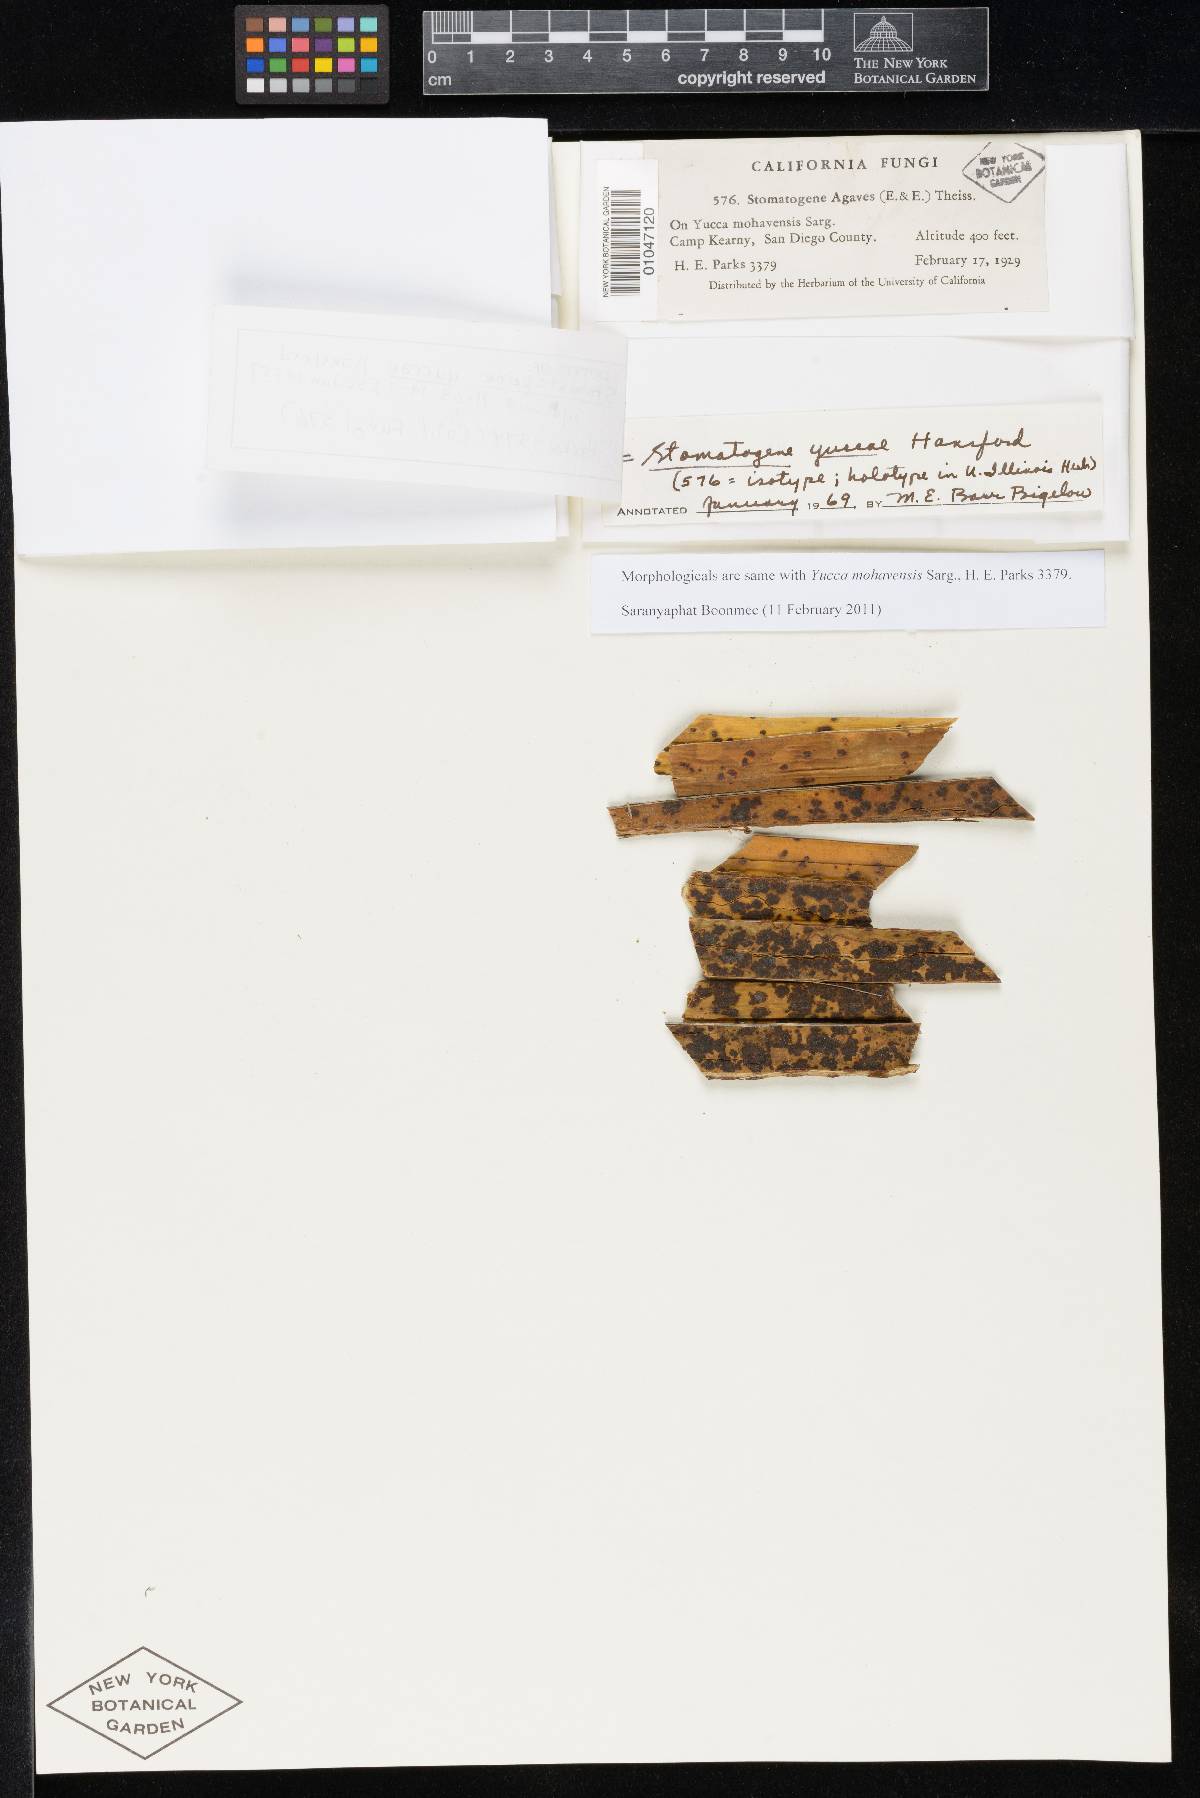 0 1 2 3 4 5 6 7 8 9 10
cm
copyright reserved
THE NEW YORK
BOTANICAL GARDEN
NEW YORK BOTANICAL GARDEN
01047120
CALIFORNIA FUNGI
NEW YORK
BOTANICAL
GARDEN
576. Stomatogene Agaves (E. & E.) Theiss.
On Yucca mohavensis Sarg.
Camp Kearny, San Diego County. Altitude 400 feet.
H. E. Parks 3379 February 17, 1929
Distributed by the Herbarium of the University of California
= Stomatogene yuccae Hansford
(576 = isotype; holotype in U. Illinois Herb)
ANNOTATED January 1969. BY M. E. Barr Bigelow
Morphologicals are same with Yucca mohavensis Sarg., H. E. Parks 3379.
Saranyaphat Boonmee (11 February 2011)
NEW YORK
BOTANICAL
GARDEN